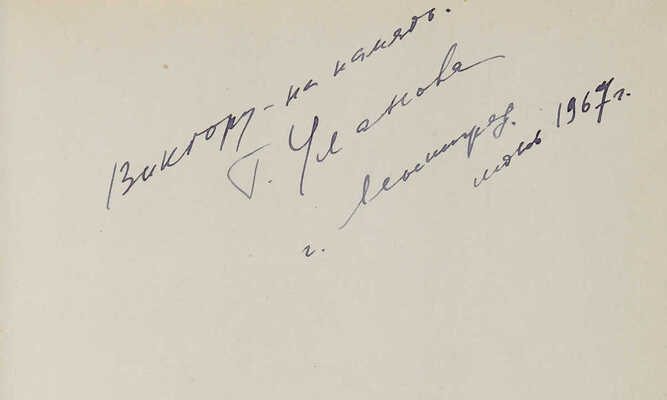 Виктору – на память.
Г. Уланова
г. Ленинград.
июнь 1967 г.